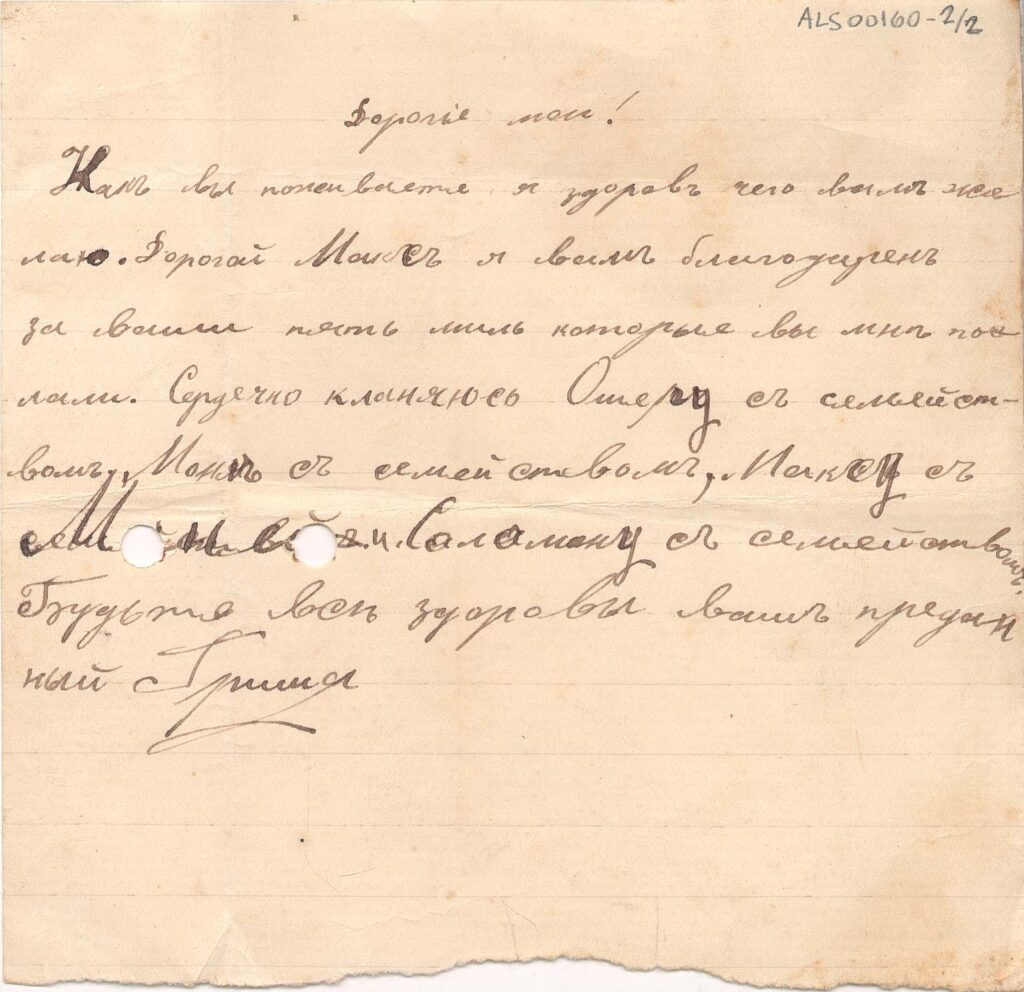 ALS00160-2/2
Дорогіе мои!
Какъ вы поживаете я здоровъ чего вамъ же
лаю. Дорогай Максъ я вамъ благодаренъ
за ваши пять миль которые вы мнѣ пос
лали. Сердечно кланяюсь Ошеру съ семейст-
вомъ, Монѣ съ семействомъ, Максу съ
и Саламону съ семействомъ.
Будьте всѣ здоровы вашъ предан
ный Гриша